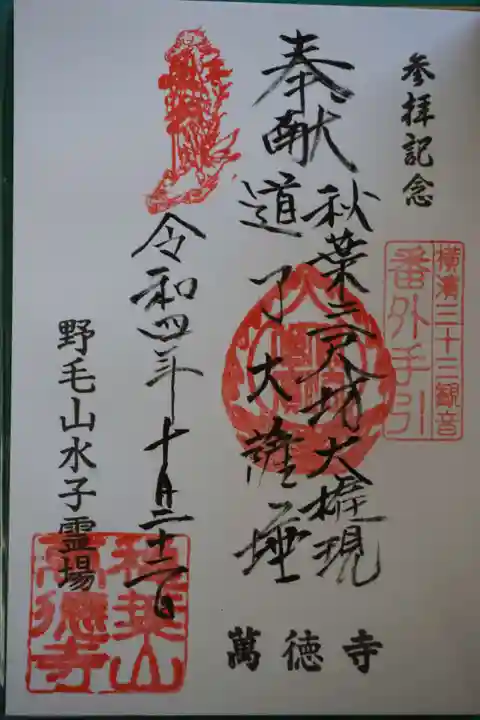 参拝記念
横濱三十三観音
番外手引
奉献
秋葉三尺坊大権現
道了大薩埵
萬徳寺
令和四年十月二十二日
野毛山水子霊場
秋葉山
萬徳寺